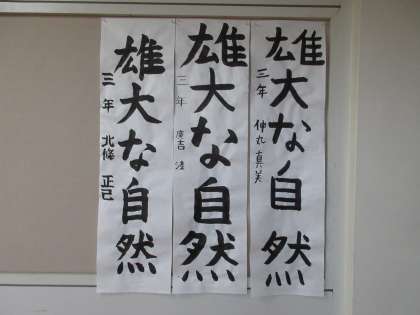 雄大な自然
三年 伸丸 真美
雄大な自然
三年 廣吉
雄大な自然
三年 北條 正己